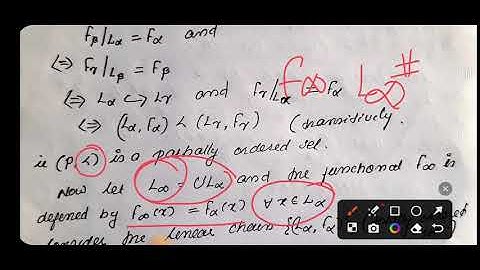 Fβ|Lα = Fα and
(⇒) Fr|Lβ = Fβ
(⇒) Lα ↪ Lr and Fr|Lα = Fα
(⇒) (Lα, Fα) < (Lr, Fr) (transitively.
ie (P, <) is a partially ordered set.
Now let L∞ = ∪Lα and the functional F∞ is
defined by F∞(x) = Fα(x) ∀ x ∈ Lα
consider the linear chain {(Lα, Fα
F∞ L∞ #